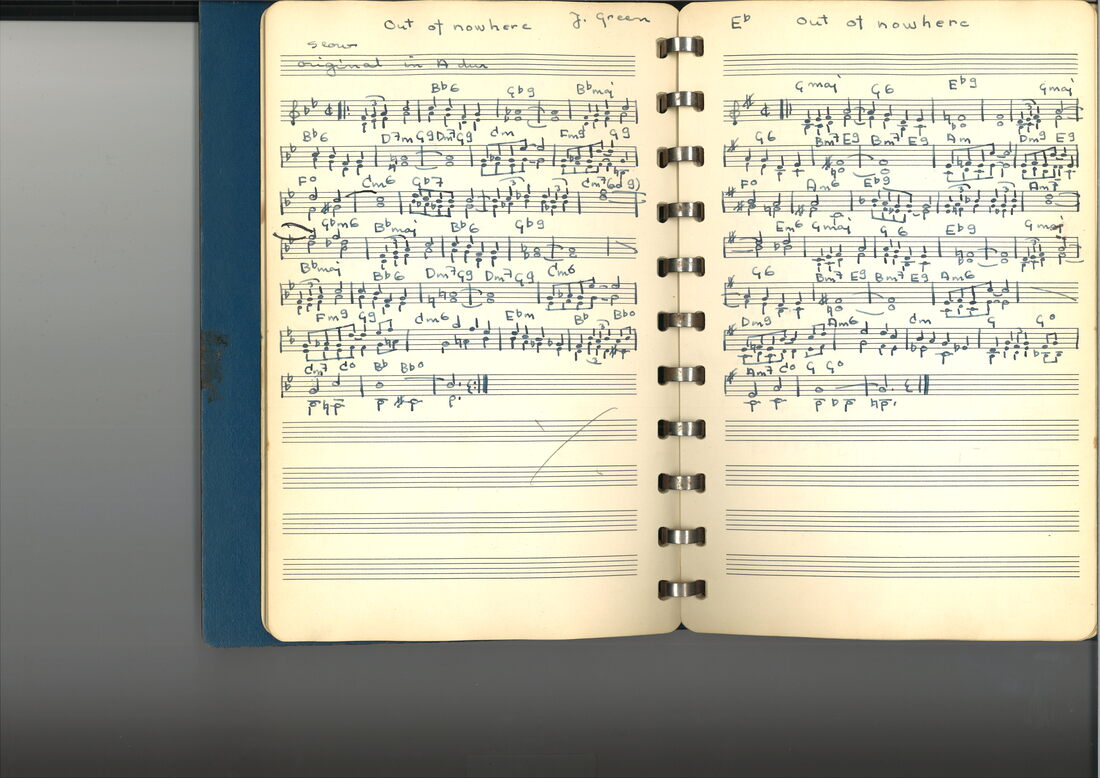 Out of nowhere J. Green
slow
original in A dur
Bb6 Gb9 Bbmaj
Bb6 D7m G9 Dm7 G9 Cm Fm9 G9
Fo Cm6 Gb7 Cm7(6d9)
Gbm6 Bbmaj Bb6 Gb9
Bbmaj Bb6 Dm7 G9 Dm7 G9 Cm6
Fm9 G9 Cm6 Ebm Bb Bbo
Cm7 Co Bb Bbo
Eb Out of nowhere
Gmaj G6 Eb9 Gmaj
G6 Bm7 E9 Bm7 E9 Am Dm9 E9
Fo Am6 Eb9 Am7
Em6 Gmaj G6 Eb9 Gmaj
G6 Bm7 E9 Bm7 E9 Am6
Dm9 Am6 Cm G Go
Am7 Co G Go